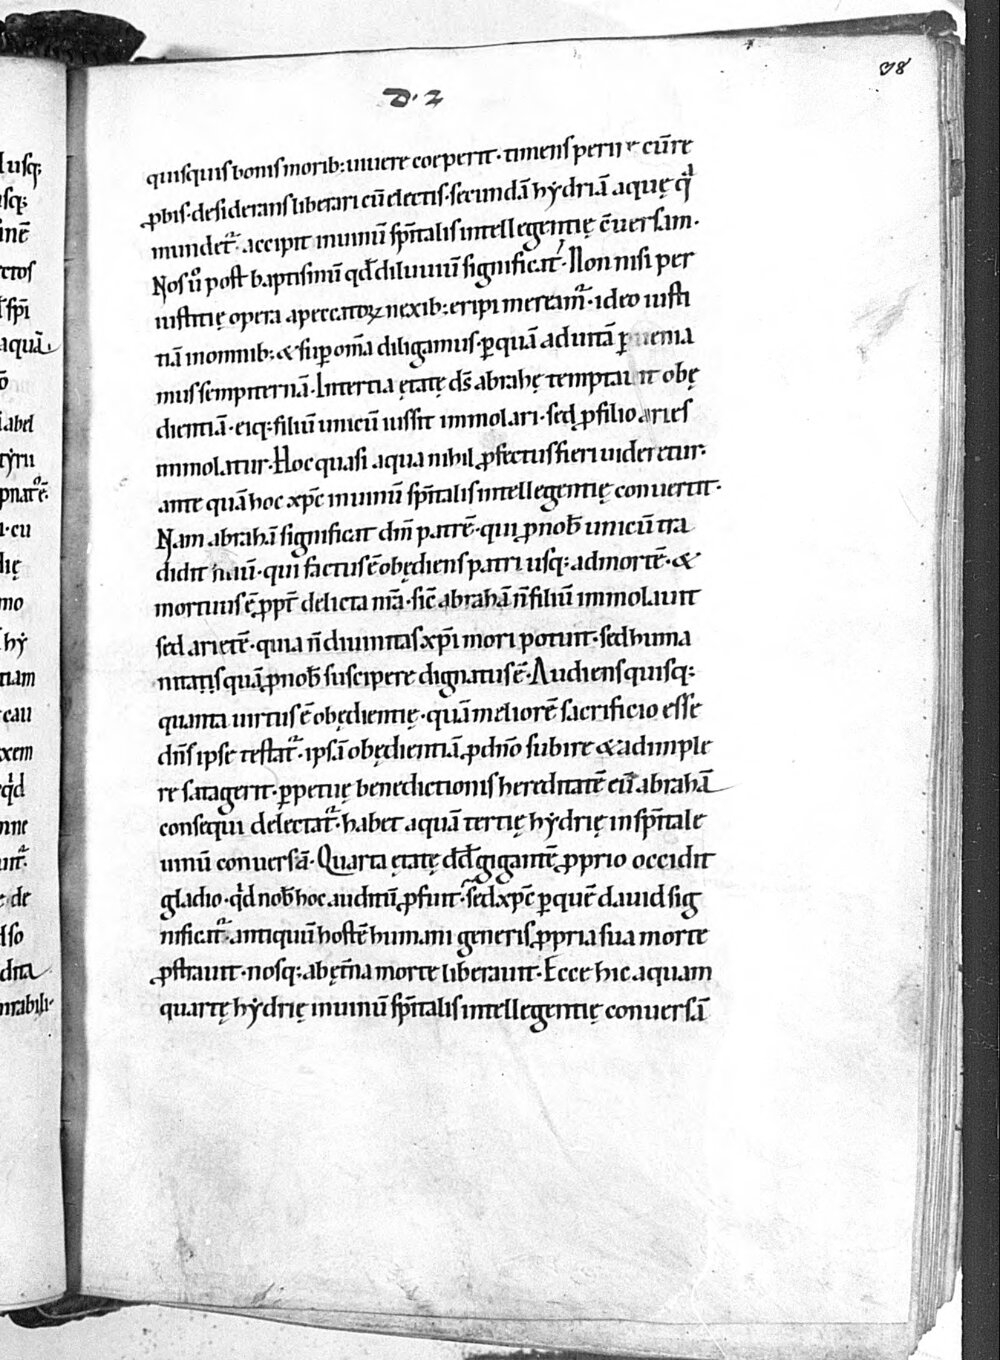 D. 2
38
quisquis bonis morib: uiuere coeperit· timens perire cū re
ꝓbis· desiderans liberari cū electis· secundā hẏdriā aquę qͣ
mundet᷑· accipit in uinū sp̄italis intellegentię c̄uersam·
Nos ů post baptismū qd̄ diluuiū significat· Non nisi per
iustitię opera a peccatoꝝ nexib: eripi meream᷑· ideo iusti
tiā in omnib: & suꝑ om̄a diligamus· ꝑ quā ad uitā ꝑuenia
mus sempiternā· In tertia ętatę ds̄ abrahę temptauit obę
dientiā· eiq: filiū unicū iussit immolari· sed ꝓ filio aries
immolatur· Hoc quasi aqua nihil ꝓfectus fieri uideretur·
ante quā hoc xp̄c in uinū sp̄italis intellegentię conuertit·
Nam abrahā significat dm̄ patrē· qui ꝓ nob̄ unicū tra
didit natū· qui factus ē obędiens patri usq: ad mortē· &
mortuus ē ꝓpt̄ delicta nr̄a· sic̄ abrahā n̄ filiū immolauit
sed arietē· quia n̄ diuinitas xp̄i mori potuit· sed huma
nitas quā ꝓ nob̄ suscipere dignatus ē· Audiens quisq:
quanta uirtus ē obędientię· quā meliorē sacrificio esse
dn̄s ipse testat᷑· ipsā obędientiā ꝓ dn̄o subire & adimple
re satagerit· ꝑpetuę benedictionis hereditatē cū abrahā
consequi delectat᷑· habet aquā tertię hẏdrię in sp̄itale
uinū conuersā· Quarta ętatę dd̄ gigantē ꝓprio occidit
gladio· qͥd nob̄ hoc auditū ꝓfuit· sed xp̄c ꝑ quē dauid sig
nificat᷑· antiquū hostē humani generis ꝓpria sua morte
ꝓstrauit· nosq: ab ęt̄na morte liberauit· Ecce hic aquam
quartę hẏdrię in uinū sp̄italis intellegentię conuersā